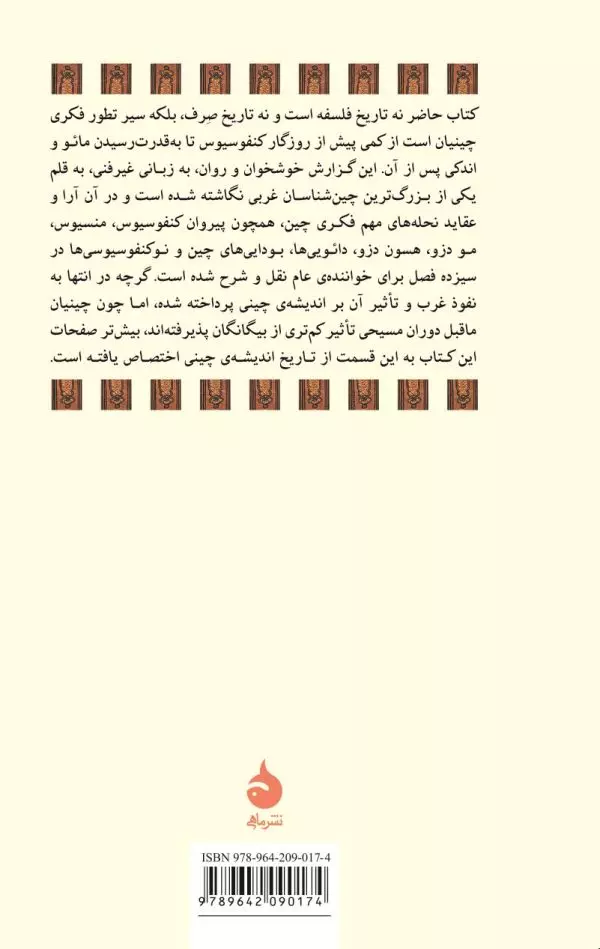 کتاب حاضر نه تاریخ فلسفه است و نه تاریخ صِرف، بلکه سیر تطور فکری
چینیان است از کمی پیش از روزگار کنفوسیوس تا به‌قدرت‌رسیدن مائو و
اندکی پس از آن. این گزارش خوشخوان و روان، به زبانی غیرفنی، به قلم
یکی از بزرگ‌ترین چین‌شناسان غربی نگاشته شده است و در آن آرا و
عقاید نحله‌های مهم فکری چین، همچون پیروان کنفوسیوس، منسیوس،
مو دزو، هسون دزو، دائویی‌ها، بودایی‌های چین و نوکنفوسیوسی‌ها در
سیزده فصل برای خواننده‌ی عام نقل و شرح شده است. گرچه در انتها به
نفوذ غرب و تأثیر آن بر اندیشه‌ی چینی پرداخته شده، اما چون چینیان
ماقبل دوران مسیحی تأثیر کم‌تری از بیگانگان پذیرفته‌اند، بیش‌تر صفحات
این کتاب به این قسمت از تاریخ اندیشه‌ی چینی اختصاص یافته است.
نشرماهی
ISBN 978-964-209-017-4
9 789642 090174